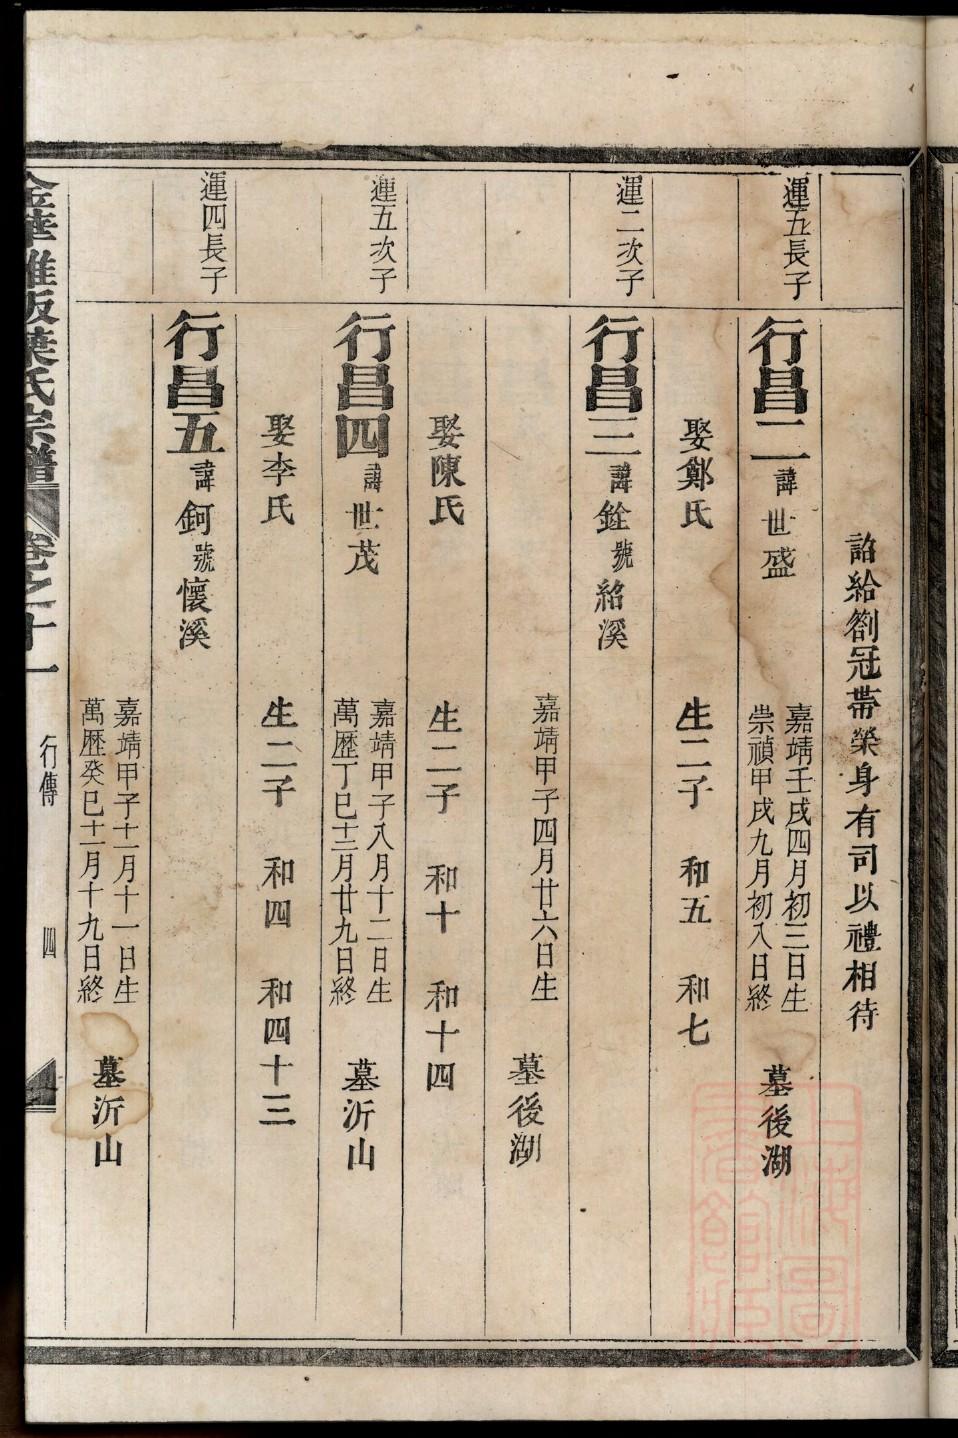 詔給劄冠帶榮身有司以禮相待
運五長子
行昌二 諱世盛
嘉靖壬戌四月初三日生
崇禎甲戌九月初八日終
墓後湖
娶鄭氏 生二子 和五 和七
運二次子
行昌三 諱銓 號紹溪
嘉靖甲子四月廿六日生
墓後湖
娶陳氏 生二子 和十 和十四
運五次子
行昌四 諱世茂
嘉靖甲子八月十二日生
萬歷丁巳十二月廿九日終
墓沂山
娶李氏 生二子 和四 和四十三
運四長子
行昌五 諱鈳 號懷溪
嘉靖甲子十一月十一日生
萬歷癸巳十一月十九日終
墓沂山
金華雅畈葉氏宗譜 卷之十一 行傳 四
上海圖書館藏